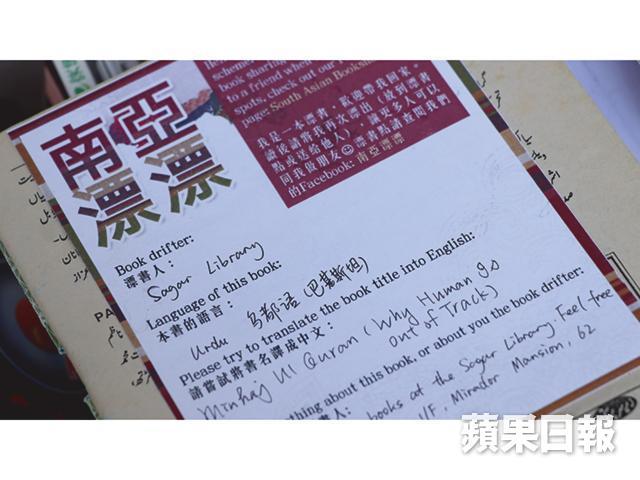 scheme.
book sharing
to a friend when
spots, check out our
page: South Asian
我是一本漂書，歡迎帶我回家。
讀後請將我再次漂出（放到漂書
點或送給他人），讓更多人可以
同我做朋友☺漂書點請查閱我們
的Facebook: 南亞漂漂
南亞
漂漂
Book drifter:
漂書人：
Sagar Library
Language of this book:
本書的語言：
Urdu 乌都语 (巴基斯坦)
Please try to translate the book title into English:
請嘗試將書名譯成中文：
Minhaj Ul Quran (Why Human is
out of Track)
thing about this book, or about you the book drifter:
書人：
books at the Sagar Library Feel free
1/F, Mirador Mansion, 62
蘋果日報